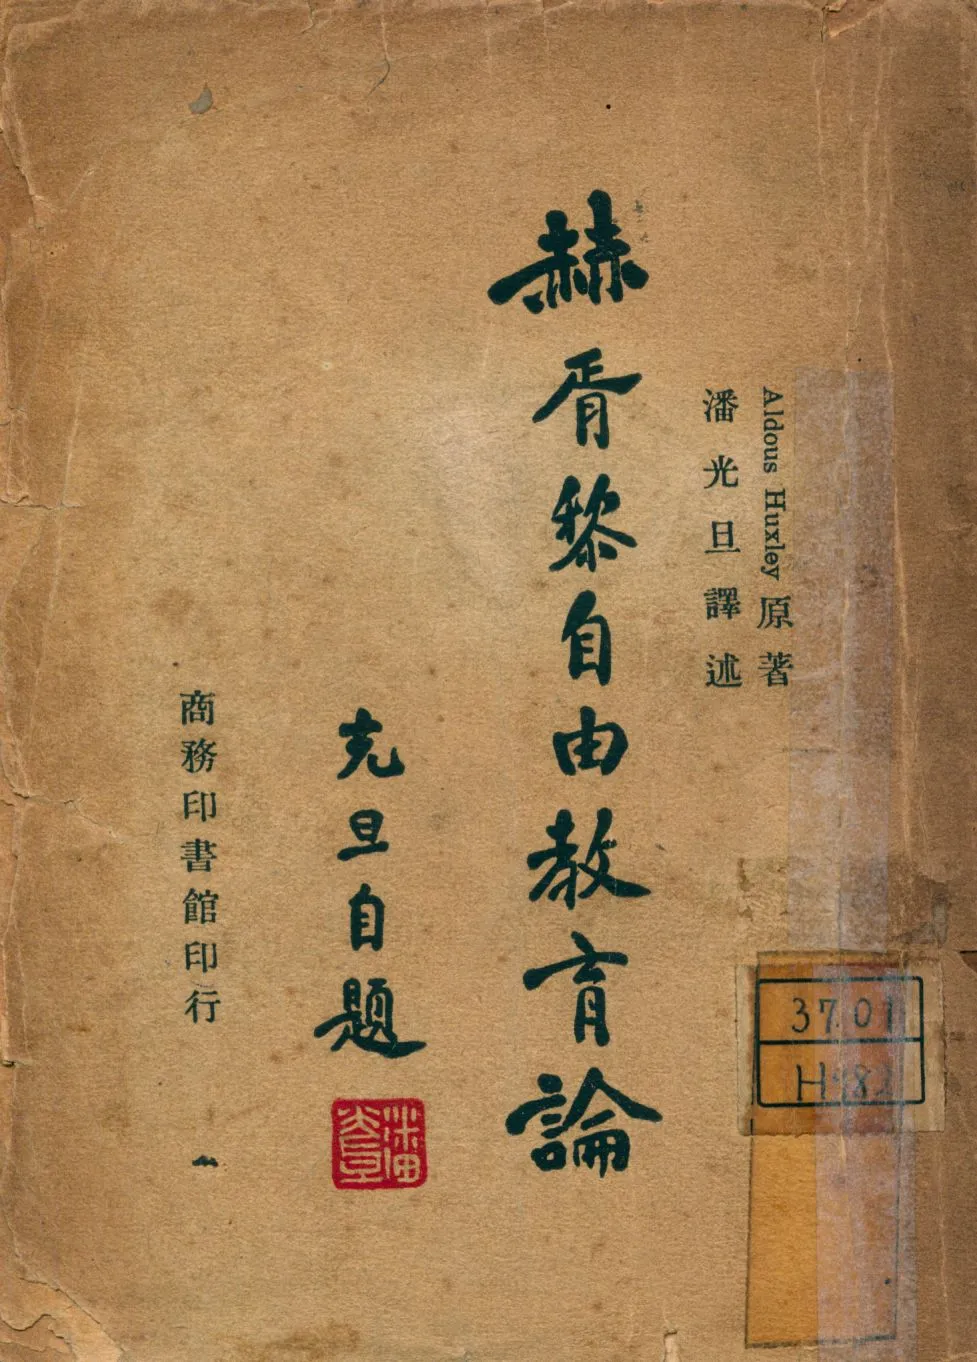 Aldous Huxley 原著
潘光旦譯述
赫胥黎自由教育論
光旦自題
潘光旦
商務印書館印行
37.01